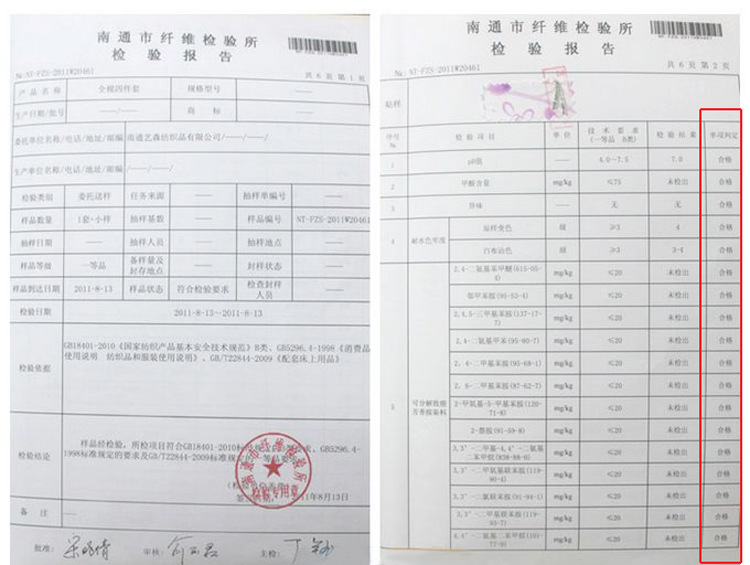 南通市纤维检验所
检 验 报 告
№:NT-FZS-2011W20461 共 6 页 第 1 页
产 品 名 称 全棉四件套 规格型号 ——
生产日期/批号 ——/—— 商 标 ——
委托单位名称/电话/地址/邮编 南通艺森纺织品有限公司/——/——/——
生产单位名称/电话/地址/邮编 ——/——/——/——
检验类别 委托送样 任务来源 —— 抽样单编号 ——
样品数量 1套+小样 抽样基数 —— 样品编号 NT-FZS-2011W20461
抽样日期 —— 抽样人员 —— 抽样地点 ——
样品等级 一等品 备样量及封存地点 —— 封样状态 ——
样品到达日期 2011-8-13 样品状态 符合检验要求 检查封样人员 ——
检验日期 2011-8-13～2011-8-13
检验依据
GB18401-2010《国家纺织产品基本安全技术规范》B类、GB5296.4-1998《消费品
使用说明 纺织品和服装使用说明》、GB/T22844-2009《配套床上用品》
检验结论
样品经检验，所检项目符合GB18401-2010标准规定B类要求、GB5296.4-
1998标准规定的要求及GB/T22844-2009标准规定的一等品要求
南通市纤维检验所
检验专用章
11年8月13日
备 注 ——
批准： 审核： 主检：
南通市纤维检验所
检 验 报 告
№:NT-FZS-2011W20461 共 6 页 第 2 页
贴样
序号 № 检 验 项 目 单 位 技 术 要 求 (一等品 B类) 检 验 结 果 单项判定
1 pH值 —— 4.0~7.5 7.0 合格
2 甲醛含量 mg/kg ≤75 未检出 合格
3 异味 —— 无 无 合格
4 耐水色牢度 原样变色 级 ≥3 4 合格
白布沾色 级 ≥3 3-4 合格
5 可分解致癌芳香胺染料
2,4-二氨基苯甲醚(615-05-4) mg/kg ≤20 未检出 合格
邻甲苯胺(95-53-4) mg/kg ≤20 未检出 合格
2,4,5-三甲基苯胺(137-17-7) mg/kg ≤20 未检出 合格
2,4-二氨基甲苯(95-80-7) mg/kg ≤20 未检出 合格
2，4-二甲基苯胺(95-68-1) mg/kg ≤20 未检出 合格
2，6-二甲基苯胺(87-62-7) mg/kg ≤20 未检出 合格
2-甲氧基-5-甲基苯胺(120-71-8) mg/kg ≤20 未检出 合格
2-萘胺(91-59-8) mg/kg ≤20 未检出 合格
3,3'-二甲基-4,4'-二氨基二苯甲烷(838-88-0) mg/kg ≤20 未检出 合格
3,3'-二甲氧基联苯胺(119-90-4) mg/kg ≤20 未检出 合格
3,3'-二氯联苯胺(91-94-1) mg/kg ≤20 未检出 合格
3,3'-二甲基联苯胺(119-93-7) mg/kg ≤20 未检出 合格
4,4'-二氨基二苯甲烷(101-77-9) mg/kg ≤20 未检出 合格